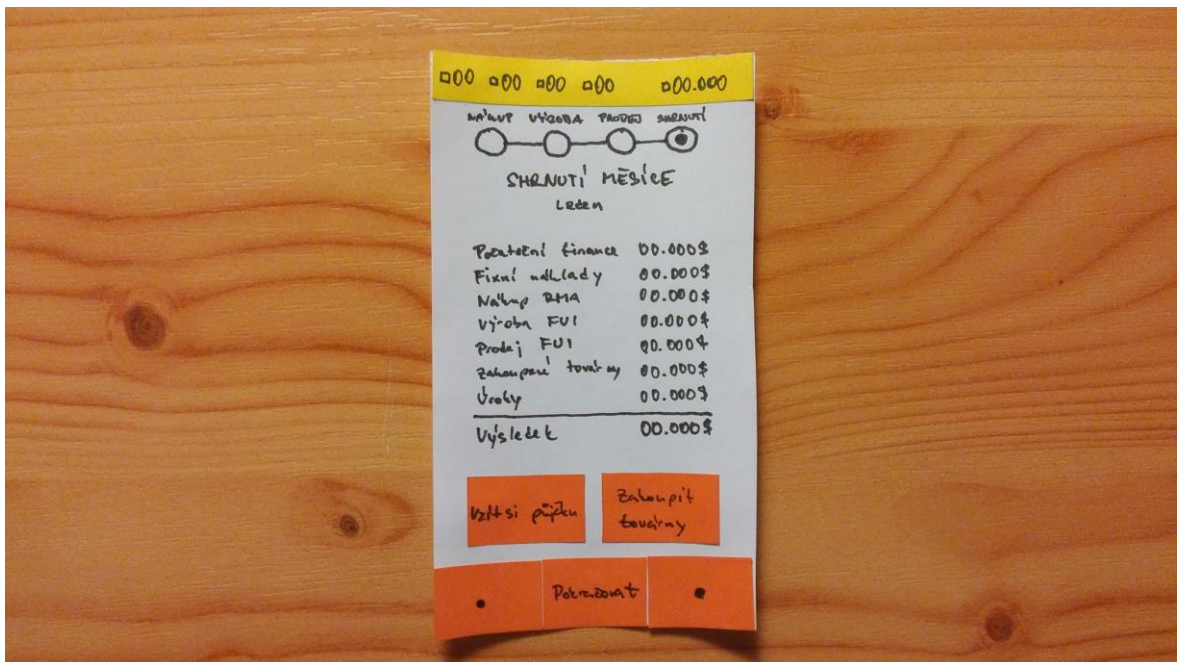 ▫00 ▫00 ▫00 ▫00 ▫00.000
NÁKUP VÝROBA PRODEJ SHRNUTÍ
SHRNUTÍ MĚSÍCE
Leden
Počáteční finance 00.000$
Fixní náklady 00.000$
Nákup RMA 00.000$
Výroba FUI 00.000$
Prodej FUI 00.000$
Zakoupené továrny 00.000$
Úroky 00.000$
Výsledek 00.000$
Vzít si půjčku
Zakoupit
továrny
Pokračovat